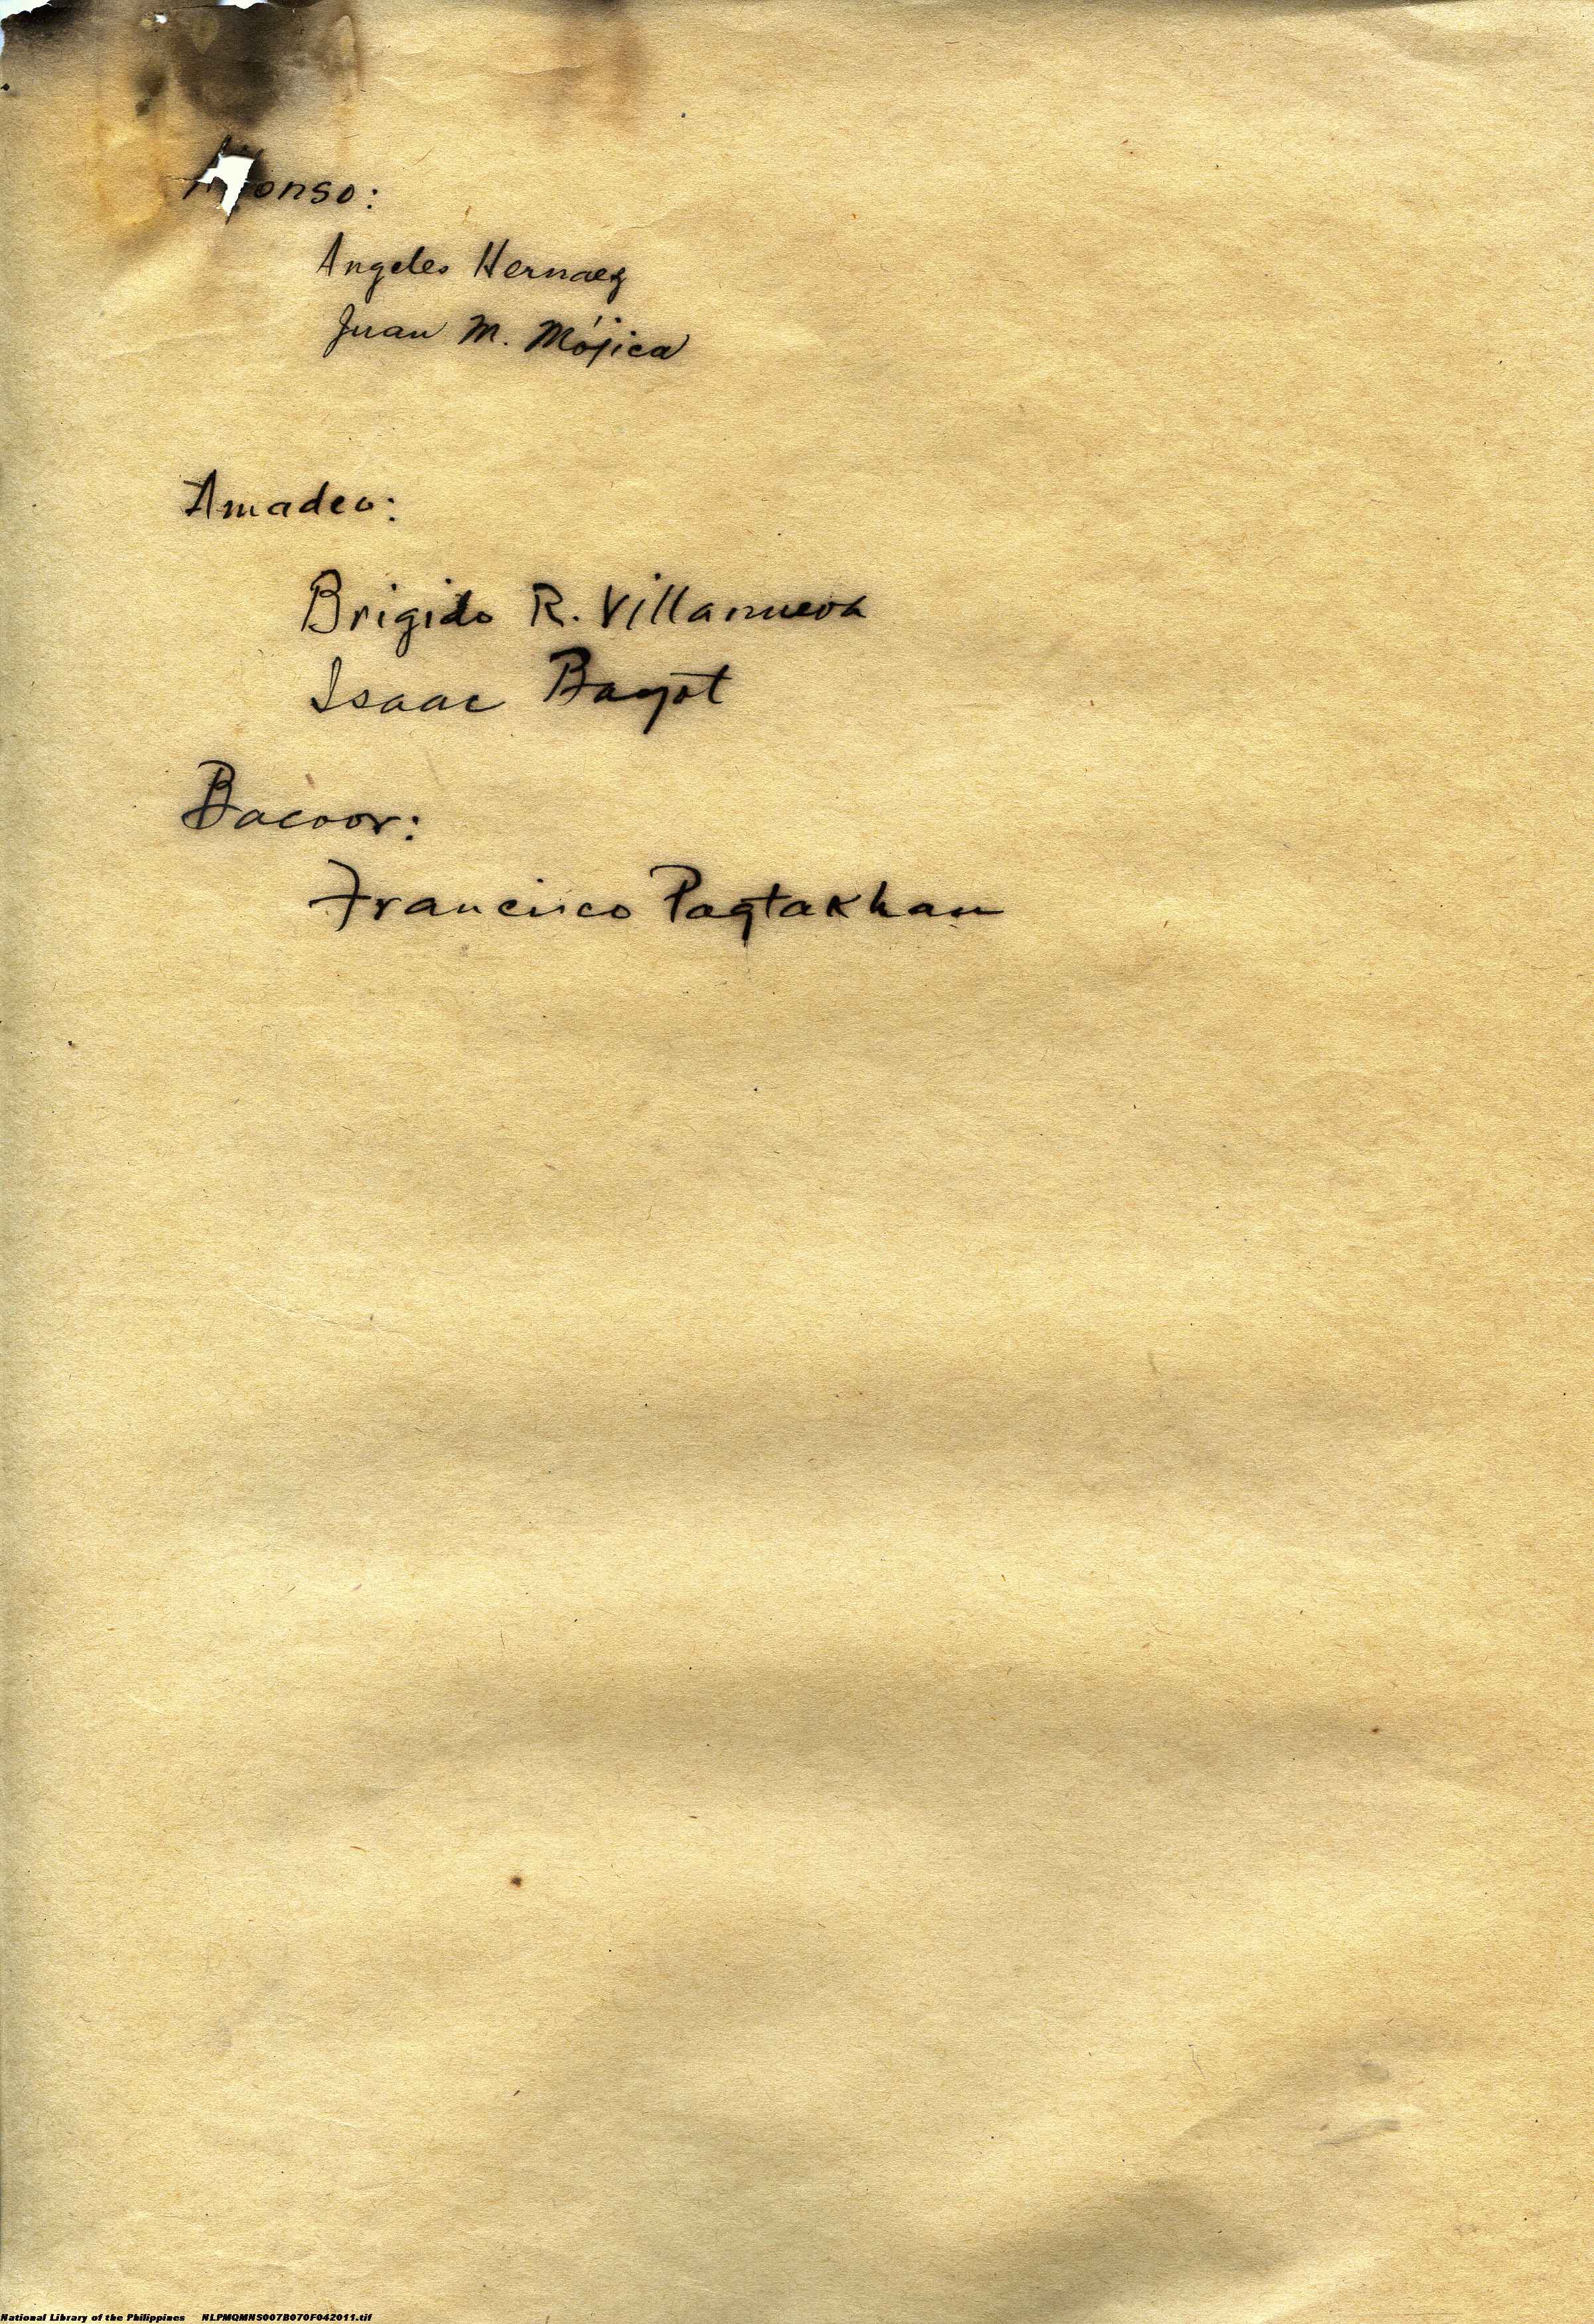 Alfonso:
Angeles Hernaez
Juan M. Mójica
Amadeo:
Brigido R. Villanueva
Isaac Bayot
Bacoor:
Francisco Pagtakhan
National Library of the Philippines NLPMQMNS007B070F042011.tif